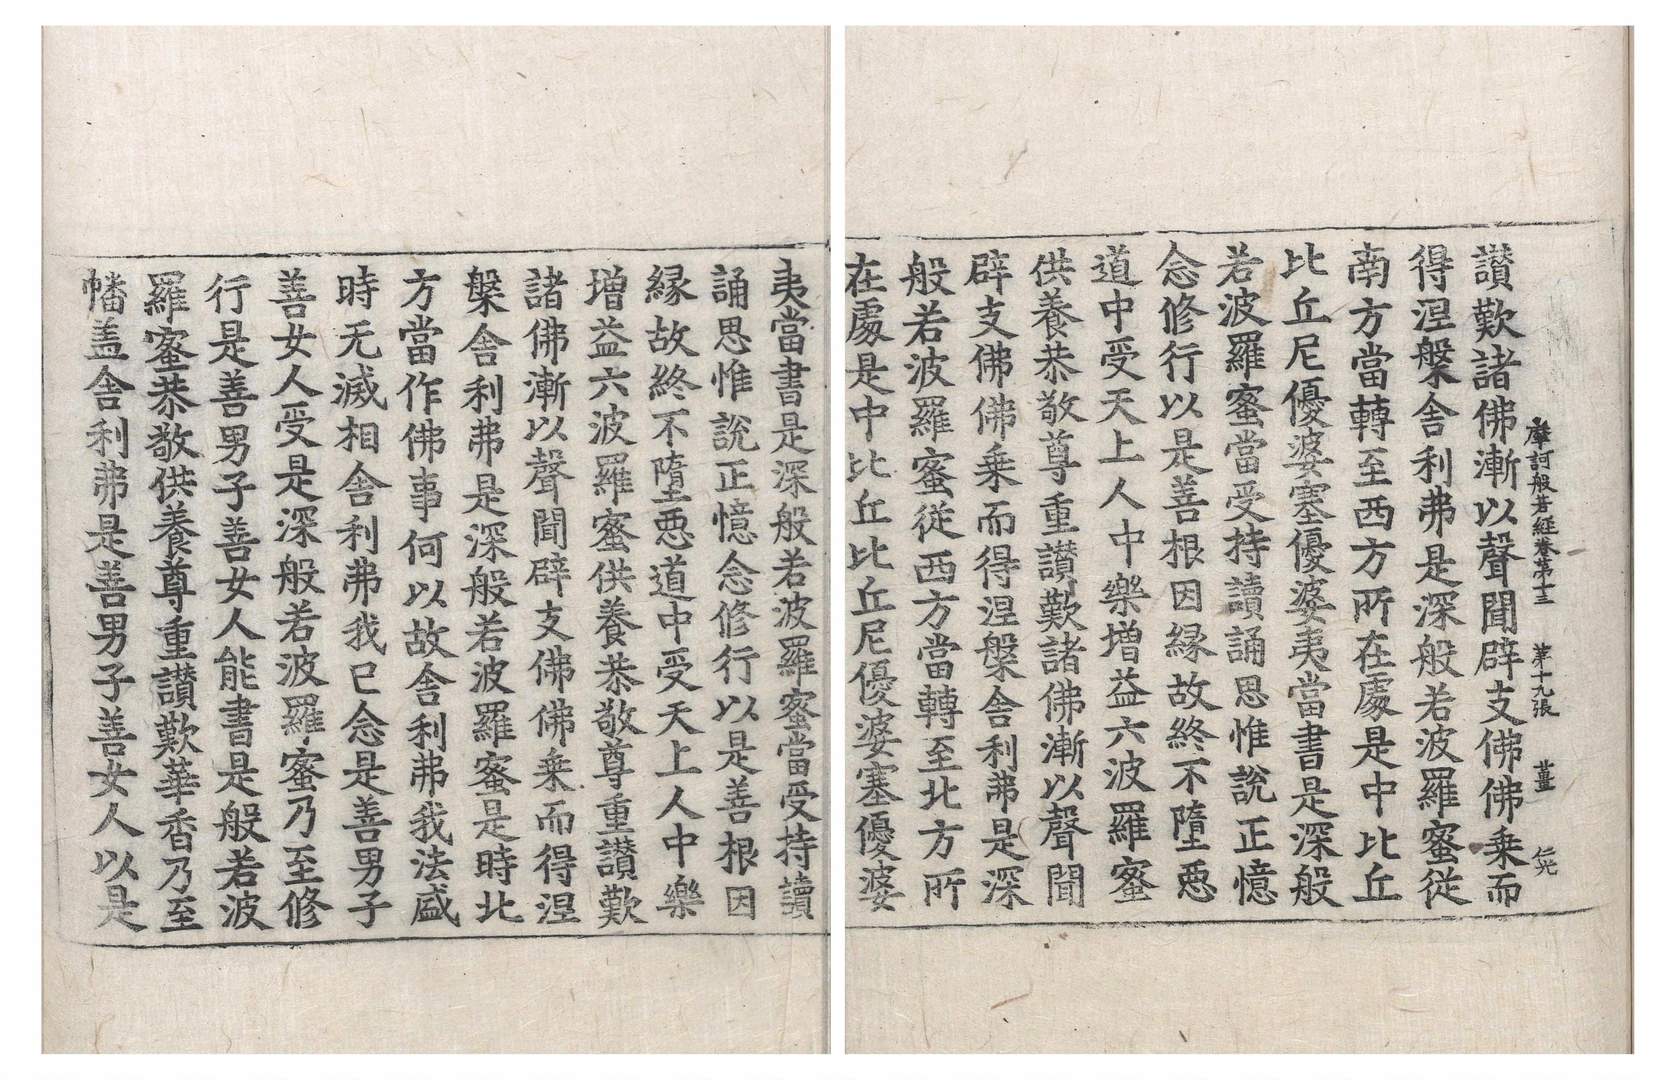 摩訶般若經卷第十三 第十九張 薑 仁光
讃歎諸佛漸以聲聞辟支佛佛乗而
得涅槃舍利弗是深般若波羅蜜従
南方當轉至西方所在處是中比丘
比丘尼優婆塞優婆夷當書是深般
若波羅蜜當受持讀誦思惟說正憶
念修行以是善根因縁故終不墮悪
道中受天上人中樂增益六波羅蜜
供養恭敬尊重讃歎諸佛漸以聲聞
辟支佛佛乗而得涅槃舍利弗是深
般若波羅蜜従西方當轉至北方所
在處是中比丘比丘尼優婆塞優婆
夷當書是深般若波羅蜜當受持讀
誦思惟說正憶念修行以是善根因
縁故終不墮悪道中受天上人中樂
增益六波羅蜜供養恭敬尊重讃歎
諸佛漸以聲聞辟支佛佛乗而得涅
槃舍利弗是深般若波羅蜜是時北
方當作佛事何以故舍利弗我法盛
時无滅相舍利弗我已念是善男子
善女人受是深般若波羅蜜乃至修
行是善男子善女人能書是般若波
羅蜜恭敬供養尊重讃歎華香乃至
幡盖舍利弗是善男子善女人以是